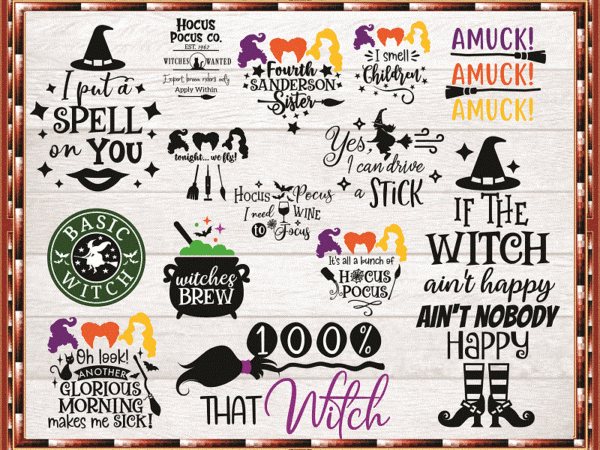 I put a
SPELL
on YOU
HOCUS
POCUS CO.
EST. 1967
WITCHES WANTED
Expert broom riders only
Apply Within
Fourth
SANDERSON
Sister
I smell
Children
AMUCK!
AMUCK!
AMUCK!
tonight... we fly!
Yes,
I can drive
a STICK
Hocus Pocus
I need WINE
to Focus
IF THE
WITCH
ain't happy
AIN'T NOBODY
HAPPY
BASIC
WITCH
witches
BREW
It's all a bunch of
HOCUS
POCUS
Oh look!
ANOTHER
GLORIOUS
MORNING
makes me SICK!
100%
THAT Witch